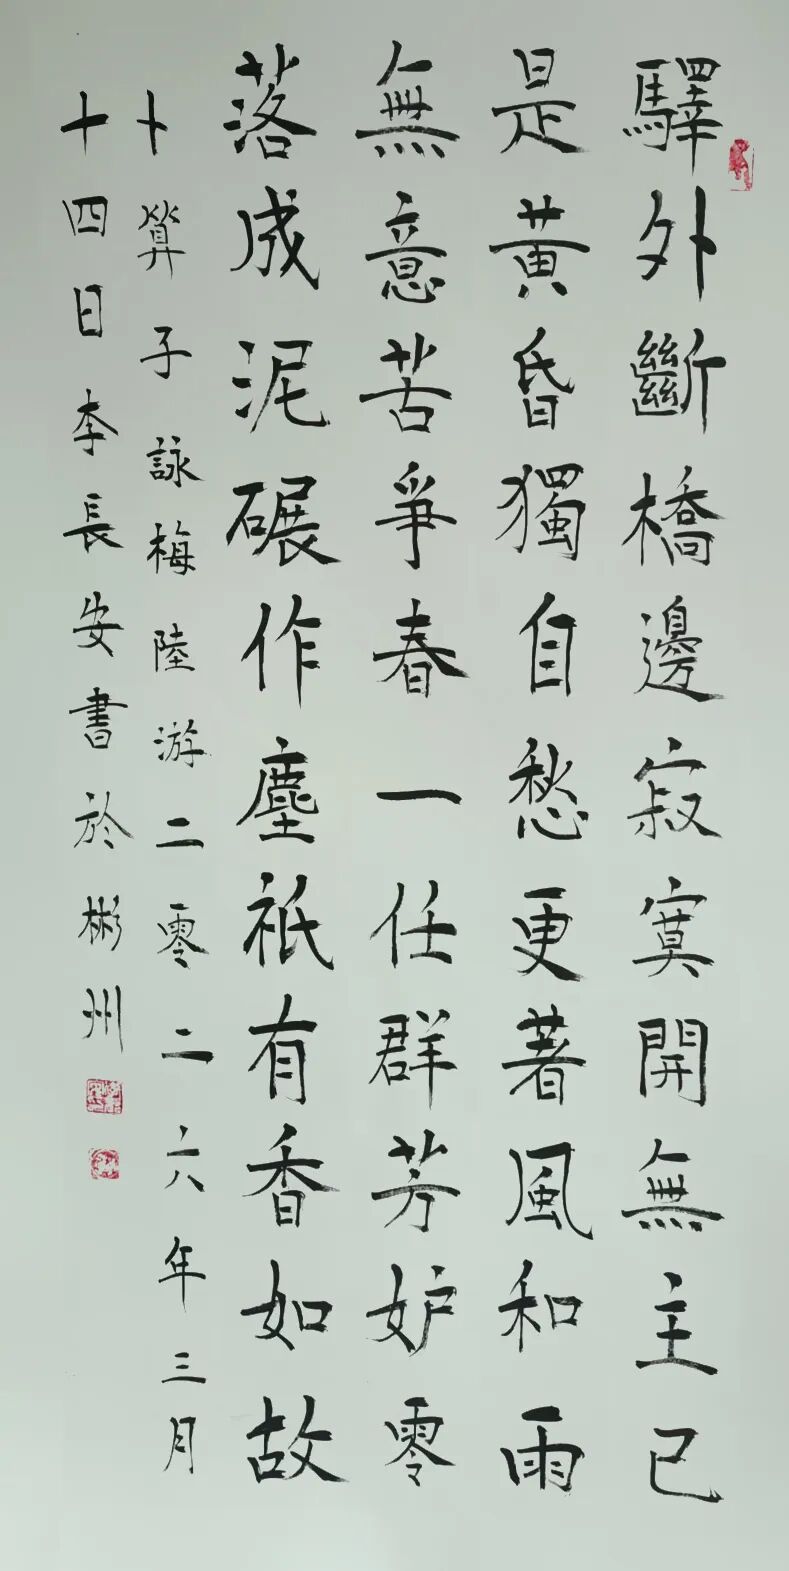 驛外斷橋邊寂寞開無主已
是黃昏獨自愁更著風和雨
無意苦爭春一任群芳妒零
落成泥碾作塵祇有香如故
卜算子詠梅陸游二零二六年三月
十四日李長安書於彬州